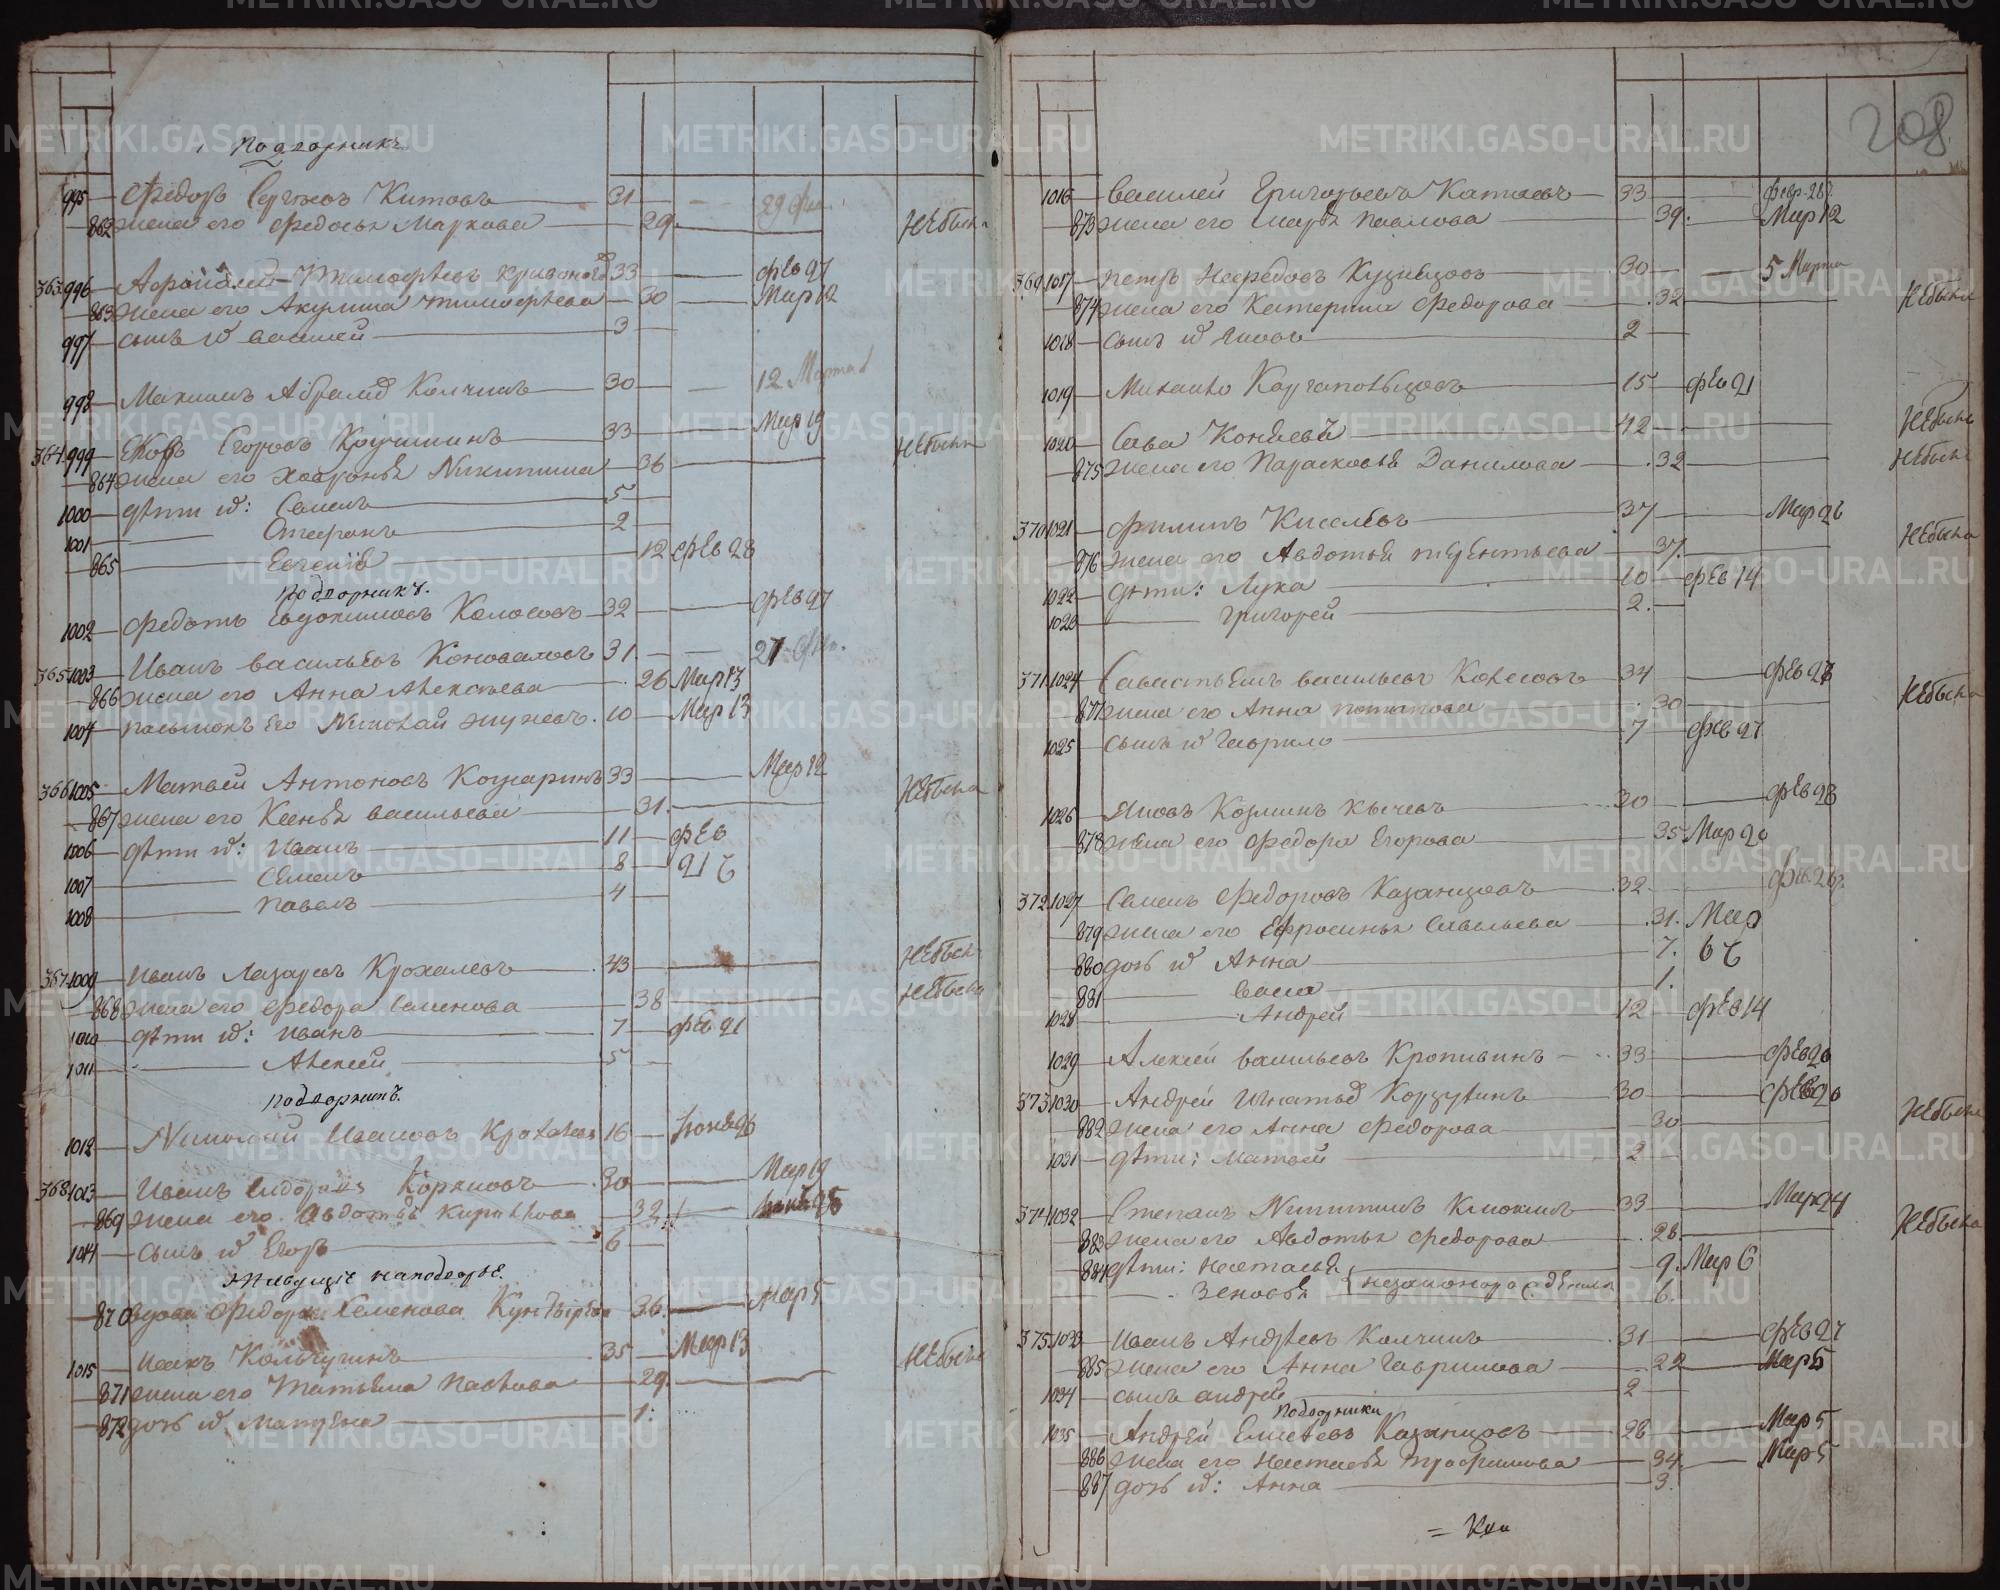 Подворникъ
995 Федоръ Сергѣевъ Китовъ 31 29 Фев.
862 жена его Федосья Маркова 29. Небыла
363 996 Афонасей Тимофѣевъ 33 фев 27
863 жена его Акулина Тимофѣева 30 Мар 12
997 сынъ их Василей 3
998 Максимъ Колчинъ 30 12 Марта
364 999 Яковъ Егоровъ 33 Мар 19 Небыла
864 жена его Хавронья Никитина 36
1000 дѣти их: Семенъ 5
1001 Стефанъ 2
865 Евгенія 12 фев 28
Подворникъ.
1002 Федотъ Евдокимовъ Колосовъ 32 фев 27
365 1003 Иванъ Васильевъ Коноваловъ 31 27 Фев.
866 жена его Анна Алексѣева 26 Мар 13
1004 пасынокъ его Николай 10 Мар 13
366 1005 Матвей Антоновъ Кожаринъ 33 Мар 12
867 жена его Ксенья Васильева 31. Небыла
1006 дѣти их: Иванъ 11 фев
1007 Семенъ 8 21
1008 Павелъ 4
367 1009 Иванъ Лазаревъ Крохалевъ 43 Небылъ
868 жена его Федора Семенова 38 Небыла
1010 дѣти их: Иванъ 7 фев 21
1011 Алексей 5
подворникъ.
1012 Николай Ивановъ 16 Іюня 26
368 1013 Иванъ Коркинъ 30 Мар 19
869 жена его Авдотья Кирилова 32
1014 сынъ их Егоръ 6
живущіе наподворье.
870 вдова Федора Семенова 36. Мар 5
1015 Исакъ Кольчугинъ 35 Мар 13
871 жена его Татьяна Павлова 29. Небыла
872 дочь их Матрена 1.
208
1016 Василей Григорьевъ Катаевъ 33 Февр. 26
873 жена его Марья Павлова 39. Мар 12
369 1017 Петръ Нефедовъ Кузнецовъ 30 5 Марта
874 жена его Катерина Федорова 32 Небыла
1018 сынъ их Яковъ 2
1019 Михайло Каргапольцовъ 15 фев 21
1020 Сава Конаевъ 42 Небылъ
875 жена его Парасковья Данилова 32 Небыла
370 1021 Филипъ Киселевъ 37 Мар 26
876 жена его Авдотья Терентьева 37. Небыла
1022 дѣти: Лука 10 фев 14
1023 Григорей 2.
371 1024 Савастьянъ Васильевъ Колесовъ 34 фев 27
877 жена его Анна Потапова 30 Небыла
1025 сынъ их Гаврило 7 фев 27
1026 Яковъ Козминъ Кычевъ 30 фев 28
878 жена его Федора Егорова 35 Мар 20
372 1027 Семенъ Федоровъ Казанцовъ 32 Фев. 26
879 жена его Ефросинья Савельева 31. Мар
880 дочь их Анна 7. 6
881 Васса 1.
1028 Андрей 12 фев 14
1029 Алексей Васильевъ Кропивинъ 33 фев 20
373 1030 Андрей Игнатьев Корзухинъ 30 фев 20
882 жена его Анна Федорова 30 Небыла
1031 дѣти: Матвей 2
374 1032 Степанъ Никитинъ Клюкинъ 33 Мар 24
883 жена его Авдотья Федорова 28. Небыла
884 дѣти: Наталья 9. Мар 6
Зеновья 6.
375 1033 Иванъ Андреевъ Колчинъ 31 фев 27
885 жена его Анна Гаврилова 22 Мар 5
1034 сынъ Андрей 2
Подворники
1035 Андрей Елисѣевъ Казанцовъ 28 Мар 5
886 жена его Настасья Трофимова 34. Мар 5
887 дочь их: Анна 3.